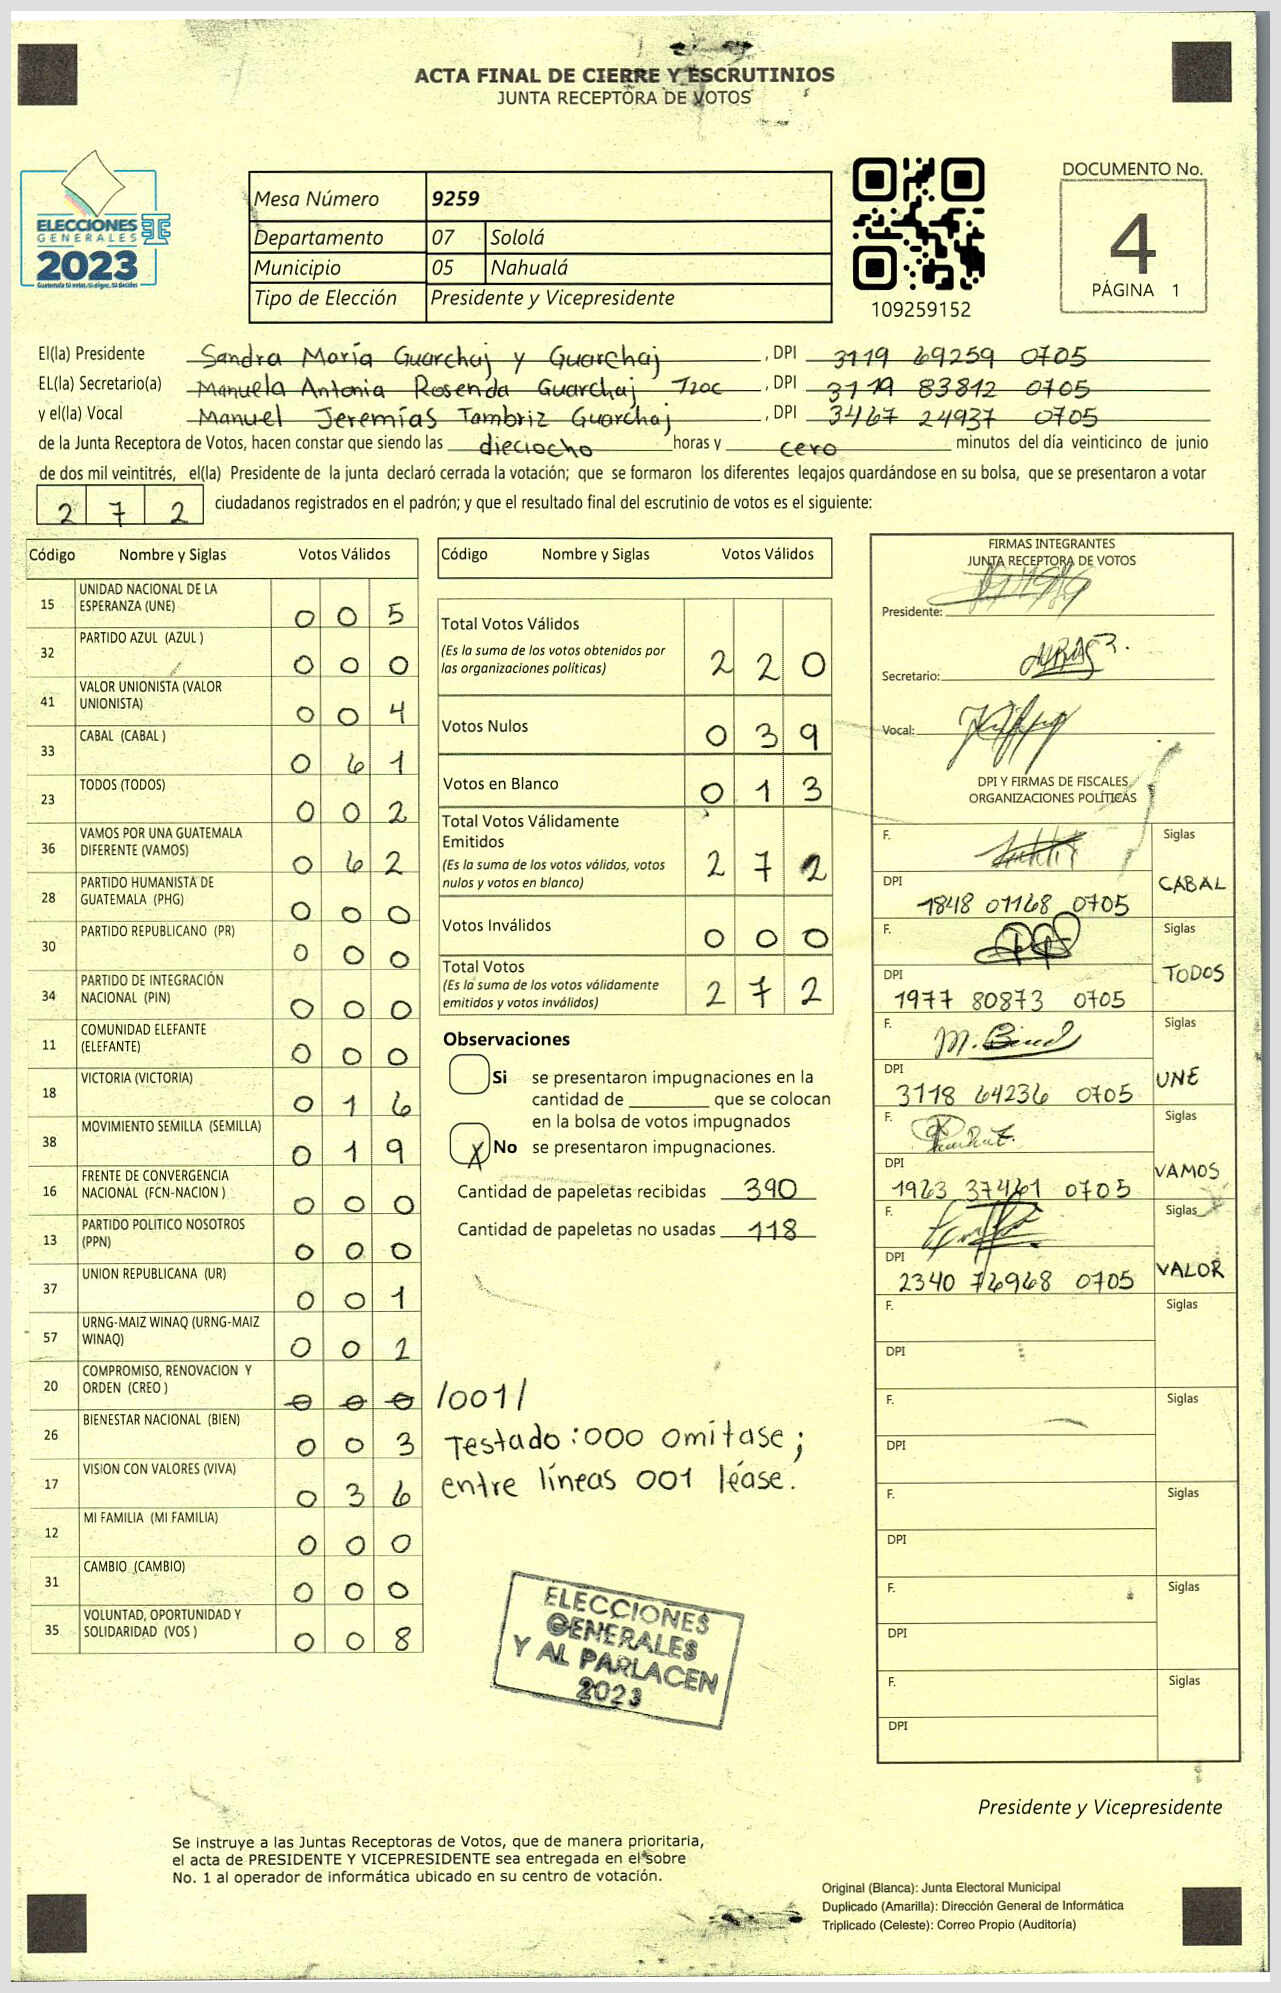 ACTA FINAL DE CIERRE Y ESCRUTINIOS
JUNTA RECEPTORA DE VOTOS
ELECCIONES
GENERALES
2023
Mesa Número 9259
Departamento 07 Sololá
Municipio 05 Nahualá
Tipo de Elección Presidente y Vicepresidente
109259152
DOCUMENTO No.
4
PÁGINA 1
El(la) Presidente Sandra María Guarchaj y Guarchaj , DPI 3119 69259 0705
EL(la) Secretario(a) Manuela Antonia Rosenda Guarchaj Tzoc , DPI 3119 83812 0705
y el(la) Vocal Manuel Jeremías Tambriz Guarchaj , DPI 3467 24937 0705
de la Junta Receptora de Votos, hacen constar que siendo las dieciocho horas y cero minutos del día veinticinco de junio
de dos mil veintitrés, el(la) Presidente de la junta declaró cerrada la votación; que se formaron los diferentes legajos quardándose en su bolsa, que se presentaron a votar
2 7 2 ciudadanos registrados en el padrón; y que el resultado final del escrutinio de votos es el siguiente:
Código Nombre y Siglas Votos Válidos
15 UNIDAD NACIONAL DE LA
ESPERANZA (UNE) 0 0 5
32 PARTIDO AZUL (AZUL ) 0 0 0
41 VALOR UNIONISTA (VALOR
UNIONISTA) 0 0 4
33 CABAL (CABAL ) 0 6 1
23 TODOS (TODOS) 0 0 2
36 VAMOS POR UNA GUATEMALA
DIFERENTE (VAMOS) 0 6 2
28 PARTIDO HUMANISTA DE
GUATEMALA (PHG) 0 0 0
30 PARTIDO REPUBLICANO (PR) 0 0 0
34 PARTIDO DE INTEGRACIÓN
NACIONAL (PIN) 0 0 0
11 COMUNIDAD ELEFANTE
(ELEFANTE) 0 0 0
18 VICTORIA (VICTORIA) 0 1 6
38 MOVIMIENTO SEMILLA (SEMILLA) 0 1 9
16 FRENTE DE CONVERGENCIA
NACIONAL (FCN-NACION ) 0 0 0
13 PARTIDO POLITICO NOSOTROS
(PPN) 0 0 0
37 UNION REPUBLICANA (UR) 0 0 1
57 URNG-MAIZ WINAQ (URNG-MAIZ
WINAQ) 0 0 2
20 COMPROMISO, RENOVACION Y
ORDEN (CREO ) 0 0 0 /001/
26 BIENESTAR NACIONAL (BIEN) 0 0 3
17 VISION CON VALORES (VIVA) 0 3 6
12 MI FAMILIA (MI FAMILIA) 0 0 0
31 CAMBIO (CAMBIO) 0 0 0
35 VOLUNTAD, OPORTUNIDAD Y
SOLIDARIDAD (VOS ) 0 0 8
Código Nombre y Siglas Votos Válidos
Total Votos Válidos
(Es la suma de los votos obtenidos por
las organizaciones políticas) 2 2 0
Votos Nulos 0 3 9
Votos en Blanco 0 1 3
Total Votos Válidamente
Emitidos
(Es la suma de los votos válidos, votos
nulos y votos en blanco) 2 7 2
Votos Inválidos 0 0 0
Total Votos
(Es la suma de los votos válidamente
emitidos y votos inválidos) 2 7 2
Observaciones
Si se presentaron impugnaciones en la
cantidad de ________ que se colocan
en la bolsa de votos impugnados
X No se presentaron impugnaciones.
Cantidad de papeletas recibidas 390
Cantidad de papeletas no usadas 118
Testado:000 omítase;
entre líneas 001 léase.
ELECCIONES
GENERALES
Y AL PARLACEN
2023
FIRMAS INTEGRANTES
JUNTA RECEPTORA DE VOTOS
Presidente:
Secretario:
Vocal:
DPI Y FIRMAS DE FISCALES
ORGANIZACIONES POLÍTICAS
F. Siglas
DPI 1848 01168 0705 CABAL
F. Siglas
DPI 1977 80873 0705 TODOS
F. Siglas
DPI 3118 64236 0705 UNE
F. Siglas
DPI 1963 37461 0705 VAMOS
F. Siglas
DPI 2340 76968 0705 VALOR
F. Siglas
DPI
F. Siglas
DPI
F. Siglas
DPI
F. Siglas
DPI
F. Siglas
DPI
Presidente y Vicepresidente
Se instruye a las Juntas Receptoras de Votos, que de manera prioritaria,
el acta de PRESIDENTE Y VICEPRESIDENTE sea entregada en el sobre
No. 1 al operador de informática ubicado en su centro de votación.
Original (Blanca): Junta Electoral Municipal
Duplicado (Amarilla): Dirección General de Informática
Triplicado (Celeste): Correo Propio (Auditoría)